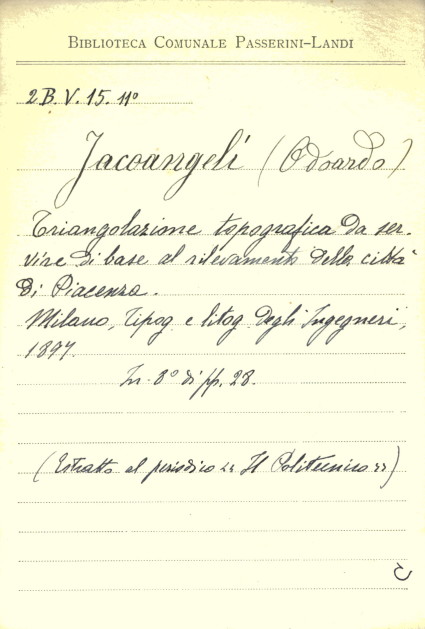 BIBLIOTECA COMUNALE PASSERINI-LANDI
2 B. V. 15. 11º
Jacoangeli (Odoardo)
Triangolazione topografica da ser-
vire di base al rilevamento della città
di Piacenza.
Milano, Tipog e litog degli Ingegneri,
1897.
In 8º di pp. 28.
(Estratto al periodico << Il Politecnico >>)